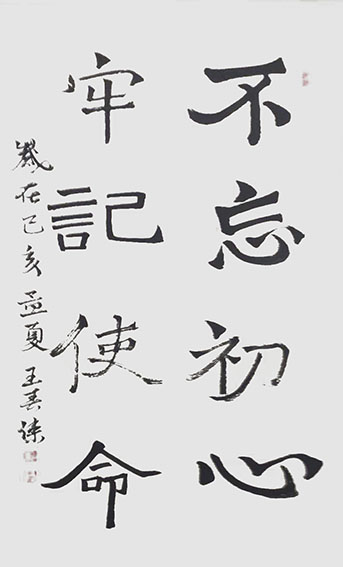 不忘初心
牢記使命
歲在己亥孟夏王春